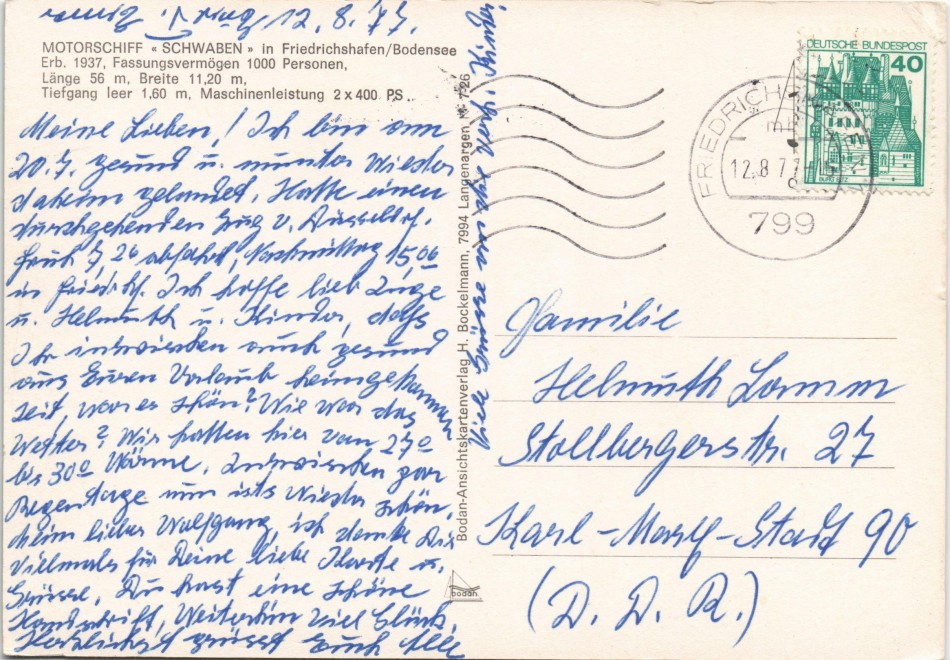 MOTORSCHIFF « SCHWABEN » in Friedrichshafen/Bodensee
Erb. 1937, Fassungsvermögen 1000 Personen,
Länge 56 m, Breite 11,20 m,
Tiefgang leer 1,60 m, Maschinenleistung 2 x 400 PS
Meine Lieben! Ich bin am
20.7. gesund u. munter wieder
daheim gelandet. Hatte einen
durchgehenden Zug v. Düsseldorf.
Früh 7,26 abfahrt, Nachmittag 15,06
in Friedrichh. Ich hoffe lieb Inge
u. Helmuth u. Kinder, dass
Ihr inzwischen auch gesund
aus Euren Urlaub heimgekommen
seit, war es schön? Wie war das
Wetter? Wir hatten hier von 27°
bis 30° Wärme. Inzwischen par
Regentage nun ists wieder schön.
lieber Wolfgang, ich danke Dir
vielmals für Deine liebe Karte u.
Grüsse, Du hast eine schöne
Handschrift, Weiterhin viel Glück.
Herzlichst grüsst Euch Alle
12.8.77.
Viele Grüsse von
Bodan-Ansichtskartenverlag H. Bockelmann, 7994 Langenargen, 7-26
bodan
DEUTSCHE BUNDESPOST
40
FRIEDRICHSHAFEN
12.8.77
799
Familie
Helmuth Lamm
Stollbergerstr. 27
Karl-Marx-Stadt 90
(D. D. R.)